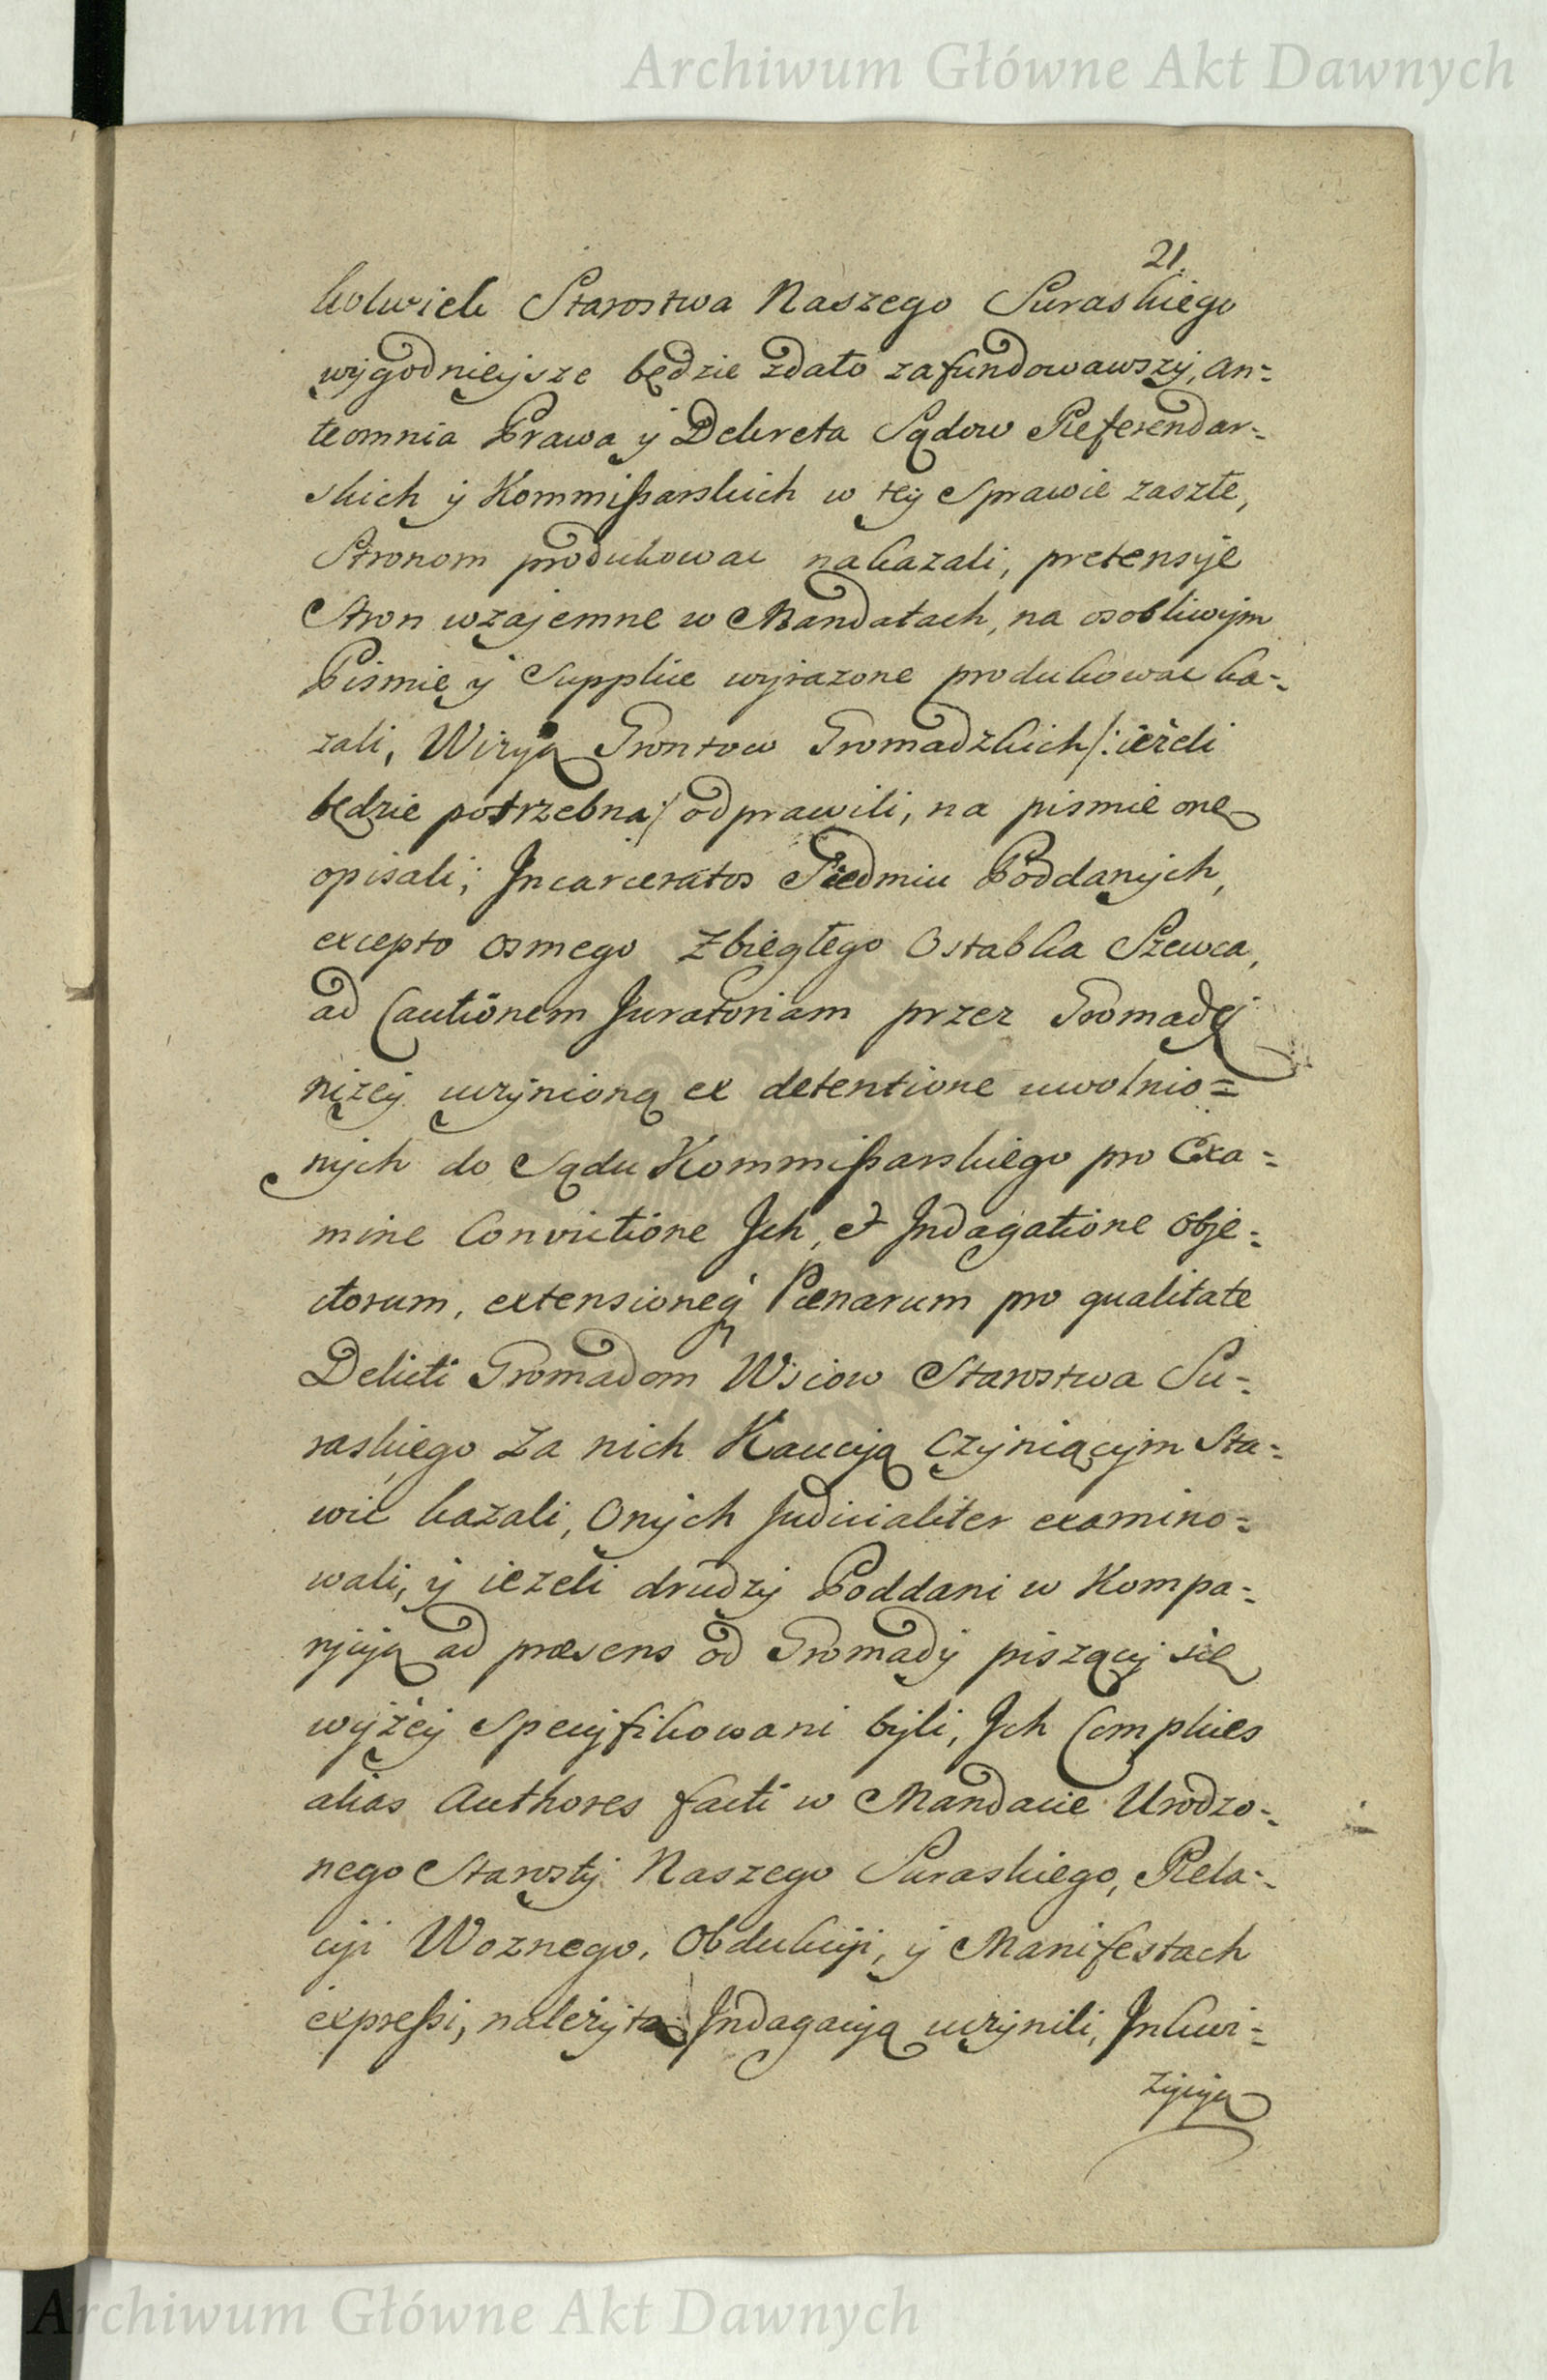 Archiwum Główne Akt Dawnych
21.
kolwiek Starostwa Naszego Suraskiego
wygodnieysze będzie zdało zafundowawszy, an=
teomnia Prawa y Dekreta Sądow Referendar=
skich y Kommißarskich w tey Sprawie zaszłe,
Stronom produkowac nakazali, pretensye
Stron wzajemne w Mandatach, na osobliwym
Pismie y Supplice wyrazone produkowac ka=
zali, Wizyą Grontow Gromadzkich /: ieżeli
będzie potrzebna :/ odprawili, na pismie onę
opisali; Incarceratos Siedmiu Poddanych,
excepto osmego zbiegłego Ostabka Szewca,
ad Cautionem Juratoriam przez Gromadę
niżey uczynioną ex detentione uwolnio=
nych do Sądu Kommißarskiego pro Exa=
mine Convictione Ich, et Indagatione obje=
ctorum, extensioneq́ Pœnarum pro qualitate
Delicti Gromadom Wsiow Starostwa Su=
raskiego za nich Kaucyą czyniącym sta=
wić kazali, Onych Judicialiter examino=
wali, y ieżeli drudzy Poddani w Kompa=
rycyą ad præsens od Gromady piszący się
wyżey specyfikowani byli, Ich Complices
alias Authores facti w Mandacie Urodzo=
nego Starosty Naszego Suraskiego, Rela=
cyi Woznego, Obdukcyi, y Manifestach
expreßi, należytą Indagacyą uczynili, Inkwi=
zycyą
Archiwum Główne Akt Dawnych